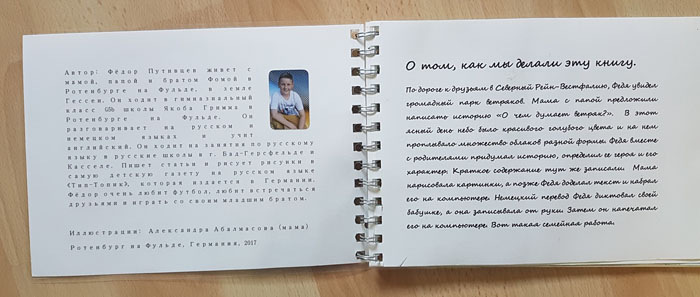 Автор: Фёдор Путивцев живет с
мамой, папой и братом Фомой в
Ротенбурге на Фульде, в земле
Гессен. Он ходит в гимназиальный
класс G5b школы Якоба Гримма в
Ротенбурге на Фульде. Он
разговаривает на русском и
немецком языках и учит
английский. Он ходит на занятия по русскому
языку в русские школы в г. Бад-Герсфельде и
Касселе. Пишет статьи и рисует рисунки в
самую детскую газету на русском языке
«Тип-Топик», которая издается в Германии.
Фёдор очень любит футбол, любит встречаться
друзьями и играть со своим младшим братом.
Иллюстрации: Александра Абалмасова (мама)
Ротенбург на Фульде, Германия, 2017
О том, как мы делали эту книгу.
По дороге к друзьям в Северный Рейн-Вестфалию, Федя увидел
громадный парк ветряков. Мама с папой предложили
написать историю «О чем думает ветряк?». В этот
ясный день небо было красивого голубого цвета и на нем
проплывало множество облаков разной формы. Федя вместе
с родителями придумал историю, определил ее героя и его
характер. Краткое содержание тут же записали. Мама
нарисовала картинки, а позже Федя доделал текст и набрал
его на компьютере. Немецкий перевод Федя диктовал своей
бабушке, а она записывала от руки. Затем он напечатал
его на компьютере. Вот такая семейная работа.